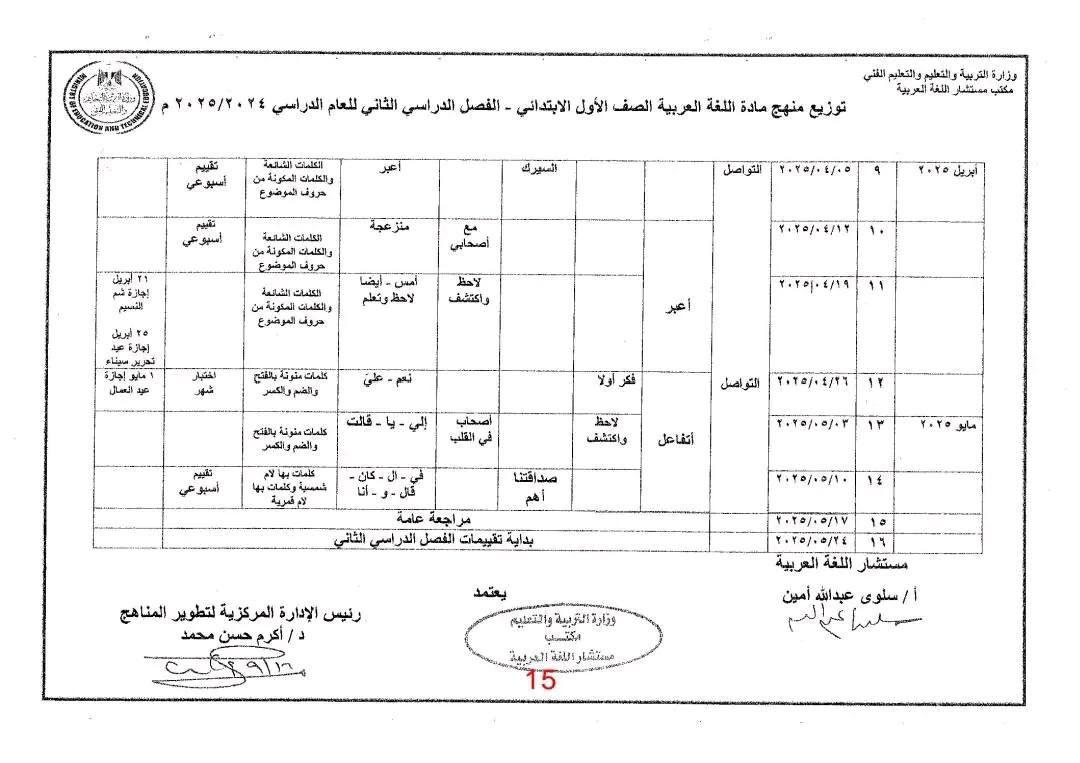 وزارة التربية والتعليم والتعليم الفني
مكتب مستشار اللغة العربية
توزيع منهج مادة اللغة العربية الصف الأول الابتدائي - الفصل الدراسي الثاني للعام الدراسي ٢٠٢٥/٢٠٢٤ م
أبريل ٢٠٢٥ ٩ ٢٠٢٥/٠٤/٠٥ التواصل السيرك أعبر الكلمات الشائعة تقييم
والكلمات المكونة من أسبوعي
حروف الموضوع
١٠ ٢٠٢٥/٠٤/١٢ مع منزعجة الكلمات الشائعة تقييم
أصحابي والكلمات المكونة من أسبوعي
حروف الموضوع
١١ ٢٠٢٥/٠٤/١٩ أعبر لاحظ أمس - أيضا الكلمات الشائعة ٢١ أبريل
واكتشف لاحظ وتعلم والكلمات المكونة من إجازة شم
حروف الموضوع النسيم
٢٥ أبريل
إجازة عيد
تحرير سيناء
١٢ ٢٠٢٥/٠٤/٢٦ التواصل فكر أولا نعم - علي كلمات منونة بالفتح اختبار ١ مايو إجازة
والضم والكسر شهر عيد العمال
مايو ٢٠٢٥ ١٣ ٢٠٢٥/٠٥/٠٣ أتفاعل لاحظ أصحاب إلي - يا - قالت كلمات منونة بالفتح
واكتشف في القلب والضم والكسر
١٤ ٢٠٢٥/٠٥/١٠ صداقتنا في - ال - كان - كلمات بها لام تقييم
أهم قال - و - أنا شمسية وكلمات بها أسبوعي
لام قمرية
١٥ ٢٠٢٥/٠٥/١٧ مراجعة عامة
١٦ ٢٠٢٥/٠٥/٢٤ بداية تقييمات الفصل الدراسي الثاني
مستشار اللغة العربية
أ / سلوى عبدالله أمين
يعتمد
وزارة التربية والتعليم
مكتب
مستشار اللغة العربية
رئيس الإدارة المركزية لتطوير المناهج
د / أكرم حسن محمد
15